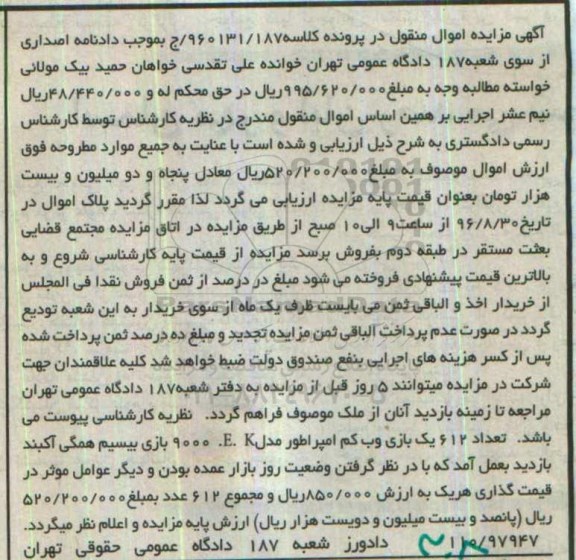 آگهی مزایده اموال منقول در پرونده کلاسه۹۶۰۱۳۱/۱۸۷/ج بموجب دادنامه اصداری
از سوی شعبه۱۸۷ دادگاه عمومی تهران خوانده علی تقدسی خواهان حمید بیک مولائی
خواسته مطالبه وجه به مبلغ۹۹۵/۶۲۰/۰۰۰ریال در حق محکم له و ۴۸/۴۴۰/۰۰۰ریال
نیم عشر اجرایی بر همین اساس اموال منقول مندرج در نظریه کارشناس توسط کارشناس
رسمی دادگستری به شرح ذیل ارزیابی و شده است با عنایت به جمیع موارد مطروحه فوق
ارزش اموال موصوف به مبلغ۵۲۰/۲۰۰/۰۰۰ریال معادل پنجاه و دو میلیون و بیست
هزار تومان بعنوان قیمت پایه مزایده ارزیابی می گردد لذا مقرر گردید پلاک اموال در
تاریخ۹۶/۸/۳۰ از ساعت۹ الی۱۰ صبح از طریق مزایده در اتاق مزایده مجتمع قضایی
بعثت مستقر در طبقه دوم بفروش برسد مزایده از قیمت پایه کارشناسی شروع و به
بالاترین قیمت پیشنهادی فروخته می شود مبلغ در درصد از ثمن فروش نقدا فی المجلس
از خریدار اخذ و الباقی ثمن می بایست ظرف یک ماه از سوی خریدار به این شعبه تودیع
گردد در صورت عدم پرداخت الباقی ثمن مزایده تجدید و مبلغ ده درصد ثمن پرداخت شده
پس از کسر هزینه های اجرایی بنفع صندوق دولت ضبط خواهد شد کلیه علاقمندان جهت
شرکت در مزایده میتوانند ۵ روز قبل از مزایده به دفتر شعبه۱۸۷ دادگاه عمومی تهران
مراجعه تا زمینه بازدید آنان از ملک موصوف فراهم گردد. نظریه کارشناسی پیوست می
باشد. تعداد ۶۱۲ یک بازی وب کم امپراطور مدلE. K. ۹۰۰۰ بازی بیسیم همگی آکبند
بازدید بعمل آمد که با در نظر گرفتن وضعیت روز بازار عمده بودن و دیگر عوامل موثر در
قیمت گذاری هریک به ارزش ۸۵۰/۰۰۰ریال و مجموع ۶۱۲ عدد بمبلغ۵۲۰/۲۰۰/۰۰۰
ریال (پانصد و بیست میلیون و دویست هزار ریال) ارزش پایه مزایده و اعلام نظر میگردد.
۱۱۰/۹۷۹۴۷ دادورز شعبه ۱۸۷ دادگاه عمومی حقوقی تهران